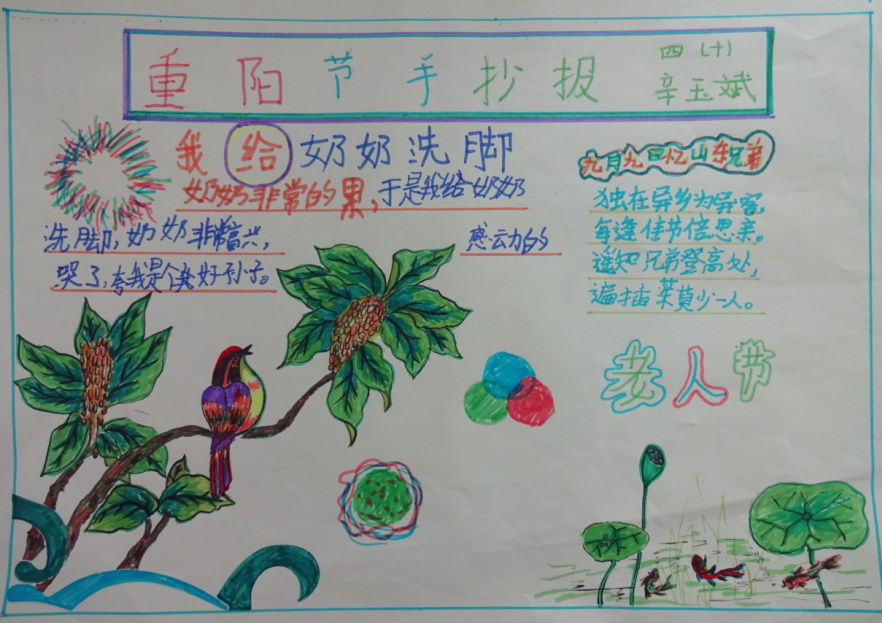 重阳节手抄报
四(十)
辛玉斌
我给奶奶洗脚
奶奶非常的累,于是我给奶奶
洗脚,奶奶非常高兴,感动的
哭了,夸我是个好孙子。
九月九回忆山东兄弟
独在异乡为异客,
每逢佳节倍思亲。
遥知兄弟登高处,
遍插茱萸少一人。
老人节